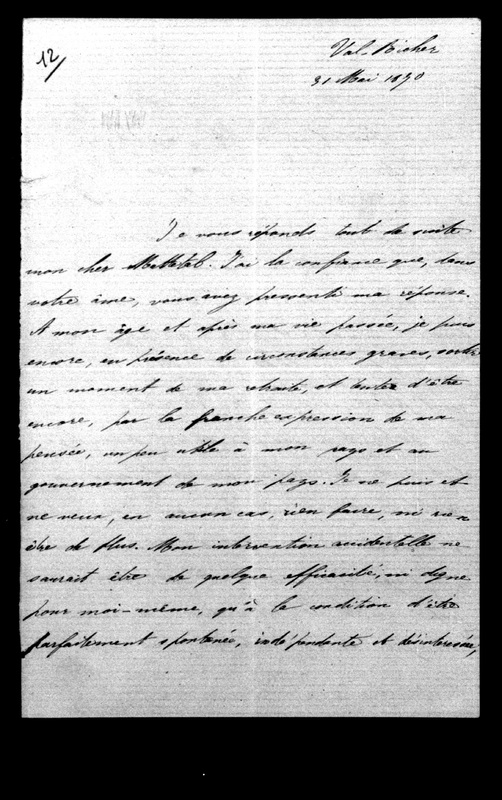 12/
Val-Richer
31 Mai 1870
Je vous réponds tout de suite
mon cher Mettetal. J'ai la confiance que, dans
votre âme, vous avez pressenti ma réponse.
A mon âge et après ma vie passée, je puis
encore, en présence de circonstances graves, sortir
un moment de ma retraite, et tenter d'être
encore, par la franche expression de ma
pensée, un peu utile à mon pays et au
gouvernement de mon pays. Je ne puis et
ne veux, en aucun cas, rien faire, ni rien
être de plus. Mon intervention accidentelle ne
saurait être de quelque efficacité, ni digne
pour moi-même, qu'à la condition d'être
parfaitement spontanée, indépendante et désintéressée,